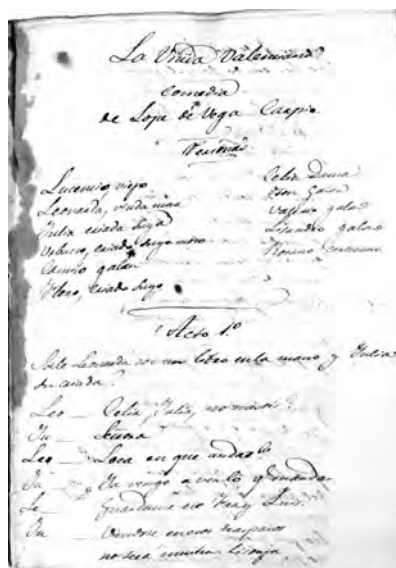 La Viuda Valenciana
Comedia
de Lope de Vega Carpio.
Personas
Lucencio, viejo
Leonarda, viuda
Julia criada suya
criado suyo
Camilo galan
Floro, criado suyo
Celia Dama
Valerio galan
Lisandro galan
Acto 1.º
Sale Leonarda con un libro en la mano y Julia
su criada.
Leo Celia, Julia, no me ois?
Ju Señora
Leo Loca en que andas?
Ju Ya vengo a ver lo q mandas
Le Guardame ese Fray Luis.
Ju
no sera mucha lisonja